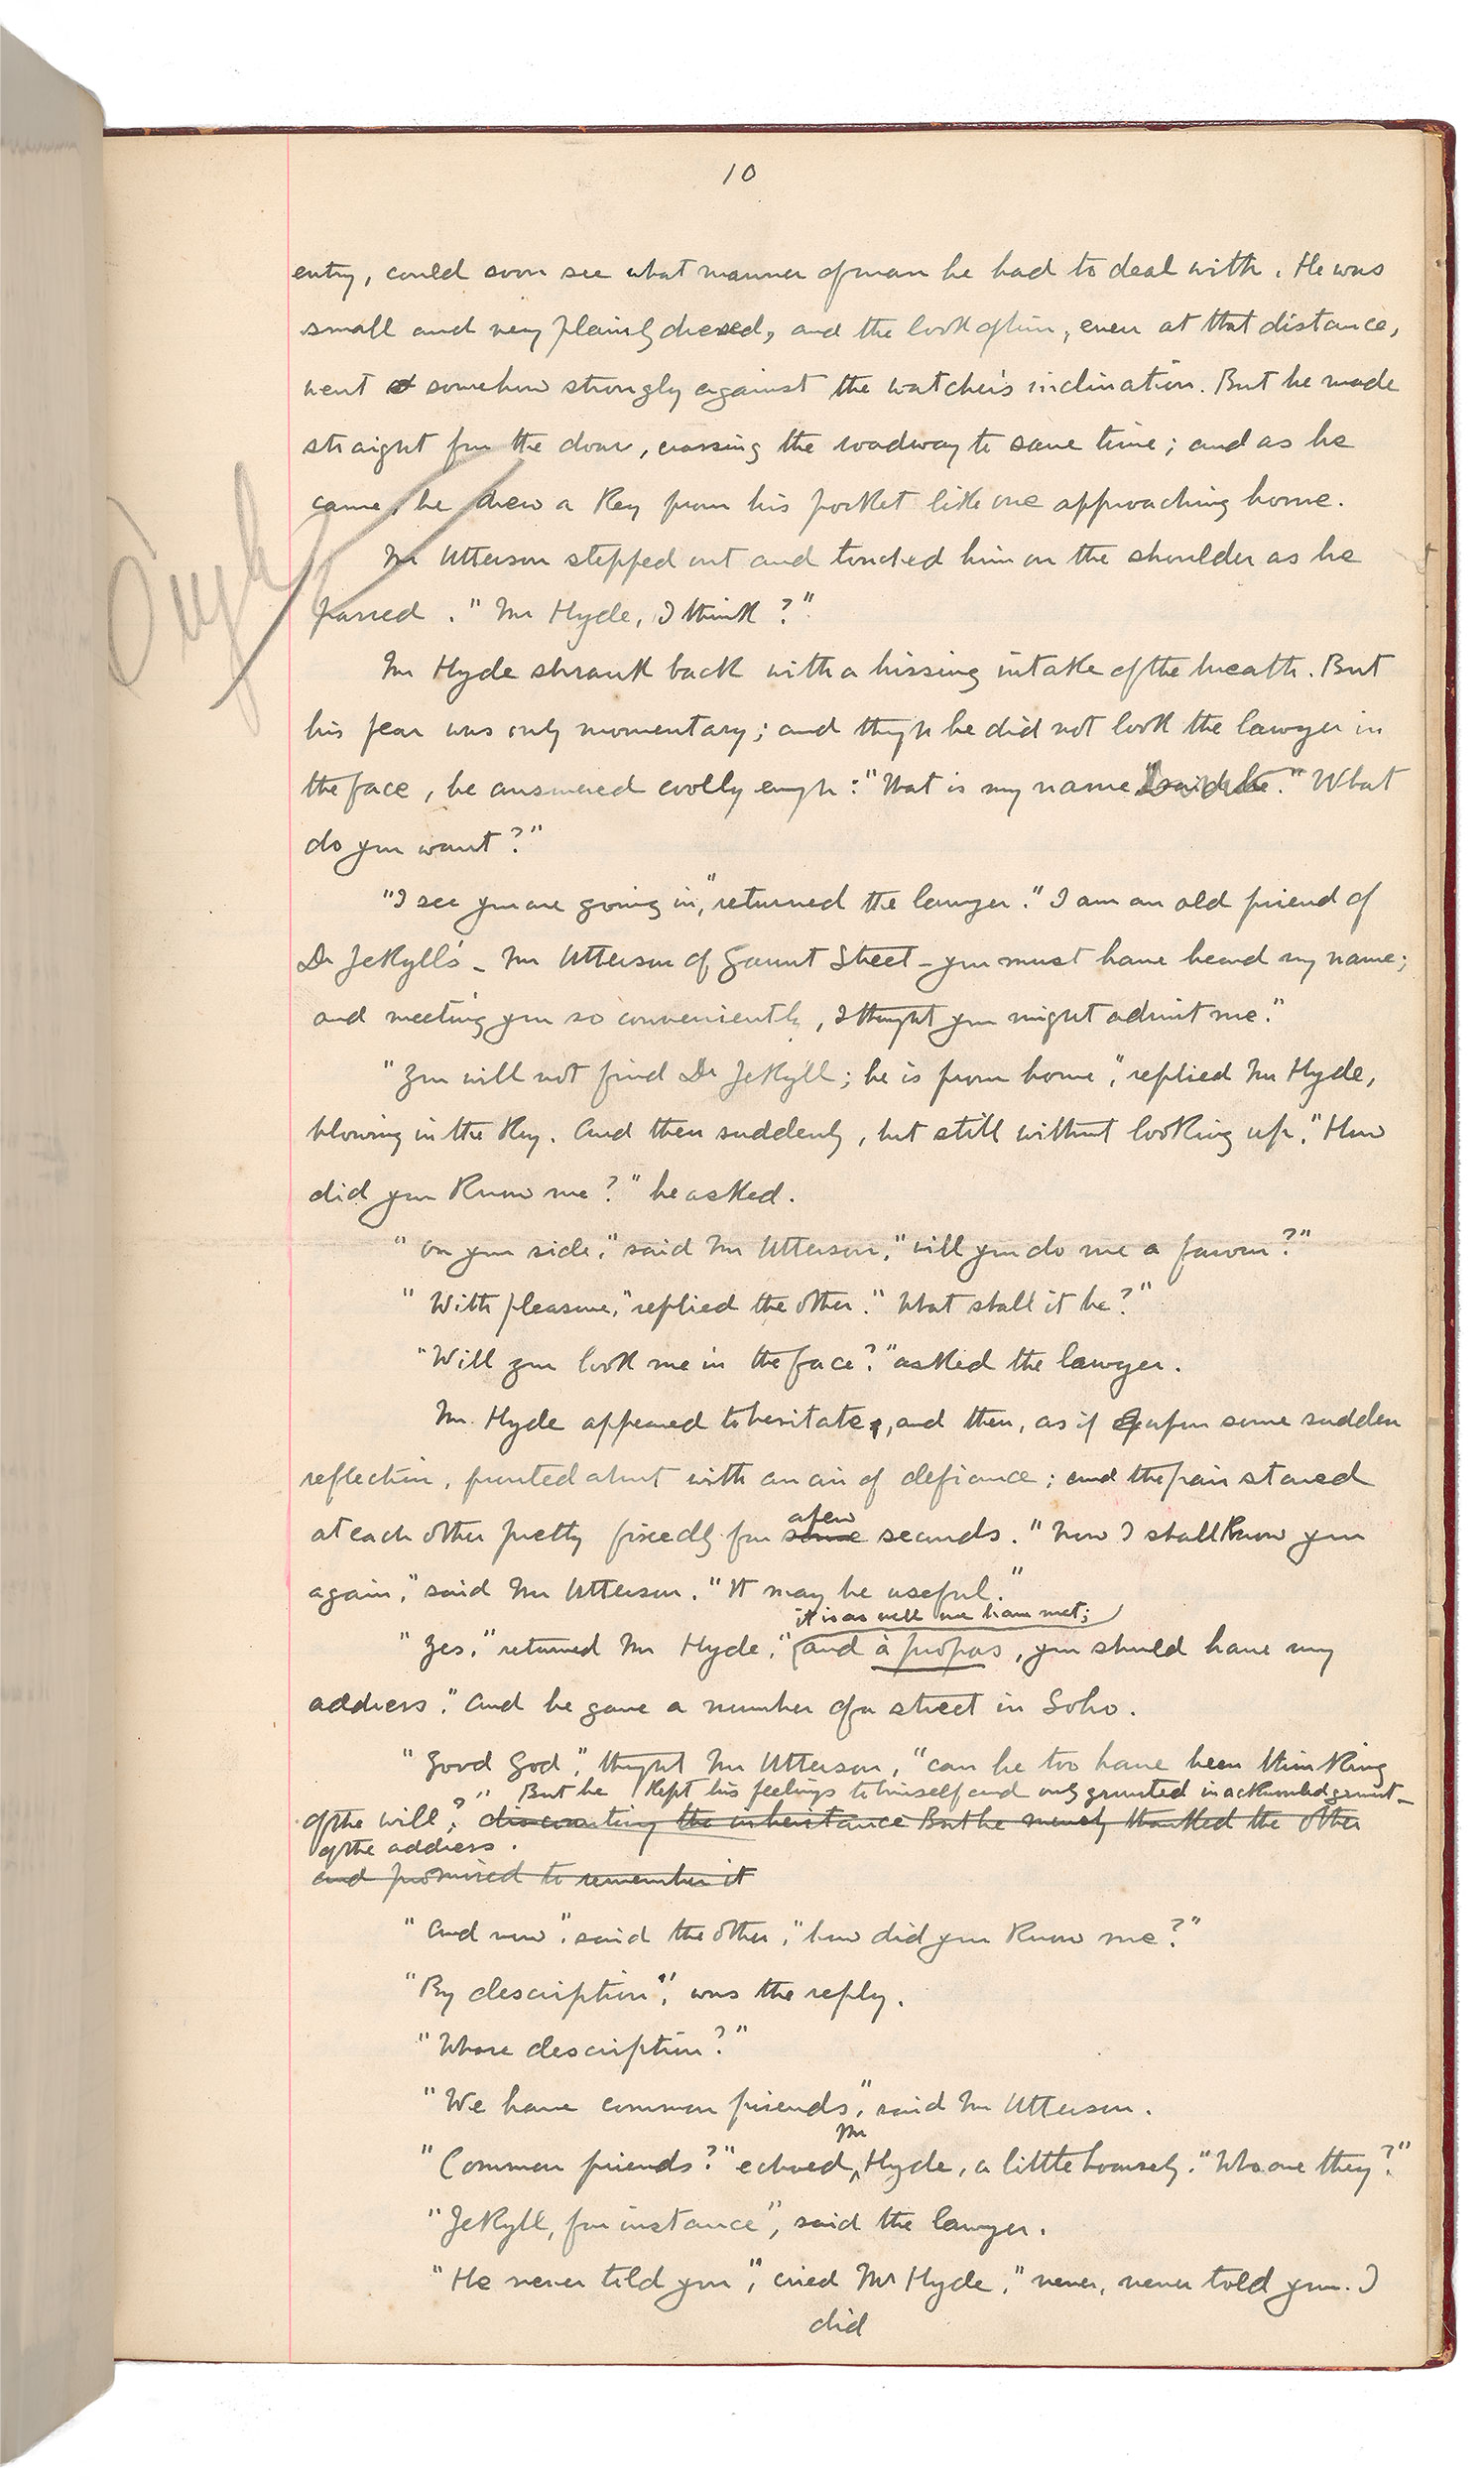 10
entry, could soon see what manner of man he had to deal with. He was
small and very plainly dressed, and the look of him, even at that distance,
went somehow strongly against the watcher's inclination. But he made
straight for the door, crossing the roadway to save time; and as he
came, he drew a key from his pocket like one approaching home.
Mr Utterson stepped out and touched him on the shoulder as he
passed. "Mr Hyde, I think?"
Mr Hyde shrank back with a hissing intake of the breath. But
his fear was only momentary; and though he did not look the lawyer in
the face, he answered coolly enough: "That is my name" said he. "What
do you want?"
"I see you are going in," returned the lawyer. "I am an old friend of
Dr Jekyll's - Mr Utterson of Gaunt Street - you must have heard my name;
and meeting you so conveniently, I thought you might admit me."
"You will not find Dr Jekyll; he is from home," replied Mr Hyde,
blowing in the key. And then suddenly, but still without looking up, "How
did you know me?" he asked.
"On your side," said Mr Utterson, "will you do me a favour?"
"With pleasure," replied the other. "What shall it be?"
"Will you look me in the face?" asked the lawyer.
Mr. Hyde appeared to hesitate, and then, as if upon some sudden
reflection, fronted about with an air of defiance; and the pair stared
a few
at each other pretty fixedly for some seconds. "Now I shall know you
again," said Mr Utterson. "It may be useful."
it is as well we have met;
"Yes," returned Mr Hyde, "and à propos, you should have my
address." And he gave a number of a street in Soho.
"Good God," thought Mr Utterson, "can he too have been thinking
But he kept his feelings to himself and only grunted in acknowledgment
of the will?" discounting the inheritance But he merely thanked the other
of the address.
and promised to remember it
"And now," said the other, "how did you know me?"
"By description," was the reply.
"Whose description?"
"We have common friends," said Mr Utterson.
Mr
"Common friends?" echoed Hyde, a little hoarsely. "Who are they?"
"Jekyll, for instance", said the lawyer.
"He never told you," cried Mr Hyde, "never, never told you. I
did